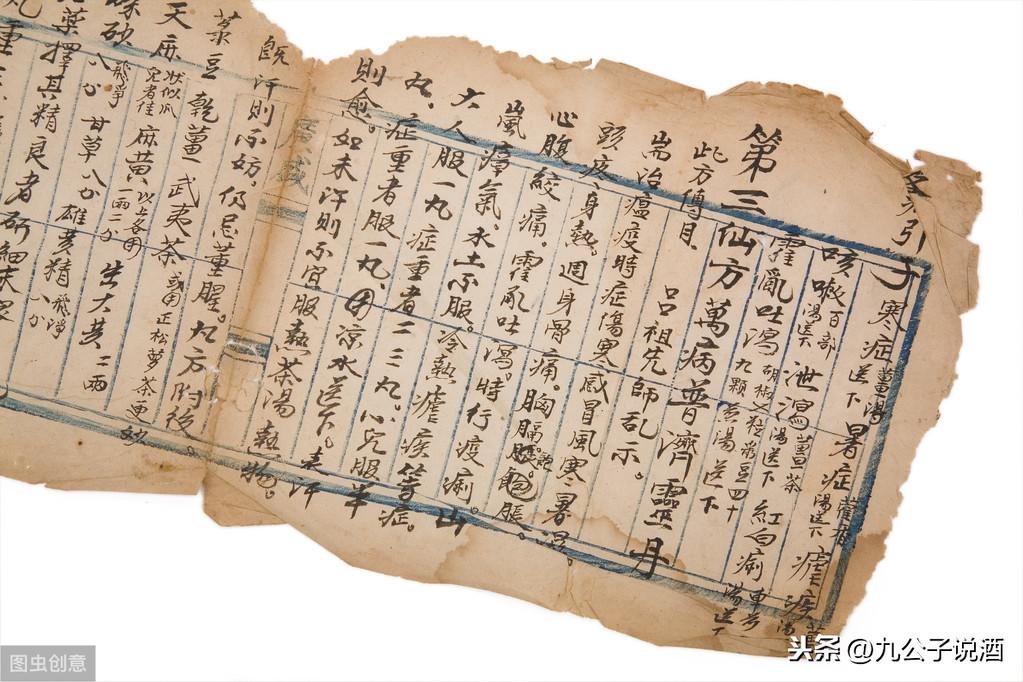 引子
寒症薑湯送下暑症藿香湯送下瘧疾
咳嗽百部湯送下泄瀉薑茶
霍亂吐瀉胡椒九顆菉豆四十湯送下紅白痢車前湯送下
第三仙方萬病普濟靈丹
此方傳自呂祖先師乩示。
耑治瘟疫時症傷寒感冒風寒暑濕。
頭疼、身熱。週身骨痛。胸膈飽脹。
心腹絞痛。霍亂吐瀉。時行疫痢。山
嵐瘴氣。水土不服。冷熱瘧疾等症。
大人服一丸症重者二三丸。小兒服半
丸、症重者服一丸、用凉水送下。表汗
則愈。如未汗則不宜服熱茶湯熱物。
既汗則不妨，仍忌葷腥。丸方附後
菉豆 乾薑 武夷茶或用正松蘿茶更妙
天麻狀似瓜 麻黃、以上各用一兩二分 生大黃二兩
砂八分 甘草八分 雄黃精飛淨八分
藥擇其精良者研細末
图虫创意
头条 @九公子说酒